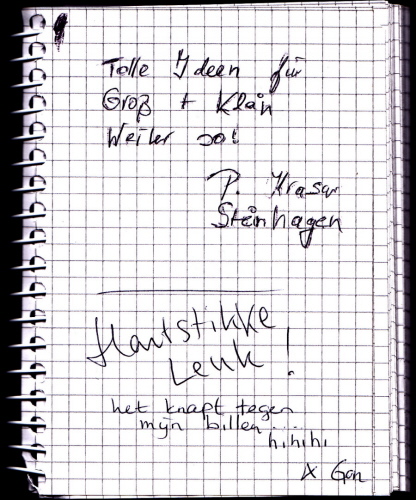 Tolle Ideen für
Groß + Klein
Weiter so!
P.
Steinhagen
Hartstikke
Leuk!
het knapt tegen
mijn billen....
hihihi
x Gon